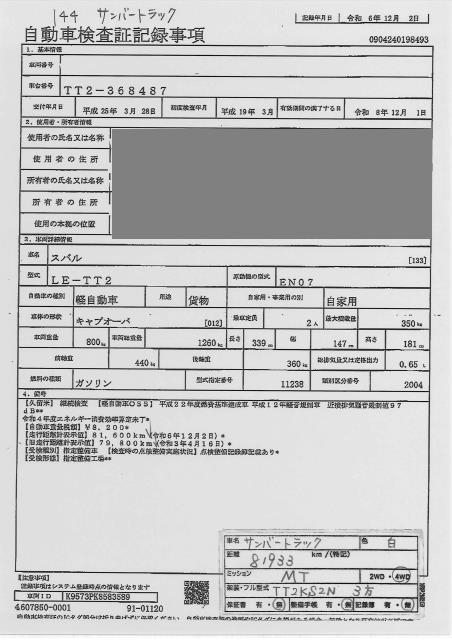 144 サンバートラック
記録年月日 令和 6年12月 2日
自動車検査証記録事項
0904240198493
1. 基本情報
車両番号
車台番号 TT2-368487
交付年月日 平成 25年 3月 28日 初度検査年月 平成 19年 3月 有効期間の満了する日 令和 8年 12月 1日
2. 使用者・所有者情報
使用者の氏名又は名称
使用者の住所
所有者の氏名又は名称
所有者の住所
使用の本拠の位置
3. 車両詳細情報
車名 スバル [133]
型式 LE-TT2 原動機の型式 EN07
自動車の種別 軽自動車 用途 貨物 自家用・事業用の別 自家用
車体の形状 キャブオーバ [012] 乗車定員 2人 最大積載量 350kg
車両重量 800kg 車両総重量 1260kg 長さ 339cm 幅 147cm 高さ 181cm
前軸重 440kg 後軸重 360kg 総排気量又は定格出力 0.65L
燃料の種類 ガソリン 型式指定番号 11238 類別区分番号 2004
4. 備考
【久留米】 継続検査 【軽自動車OSS】 平成22年度燃費基準達成車 平成12年軽音規制車 近接排気騒音規制値97
dB**
令和4年度エネルギー消費効率算定未了*
【自動車重量税額】¥8,200*
【走行距離計表示値】81,600km(令和6年12月2日)*
【旧走行距離計表示値】79,800km(令和3年4月16日)*
【受検種別】指定整備車 【検査時の点検整備実施状況】点検整備記録簿記載あり*
【受検形態】指定整備工場**
車名 サンバートラック 色 白
距離 81933 km/(特記)
ミッション MT 2WD・4WD
型式・フル型式 TT2KS2N 3方
保証書 有・無 整備手帳 有・無 記録簿 有・無
【注意事項】
記録事項はシステム登録時点の情報となります
車両ID K9573PK8583589
4607850-0001 91-01120